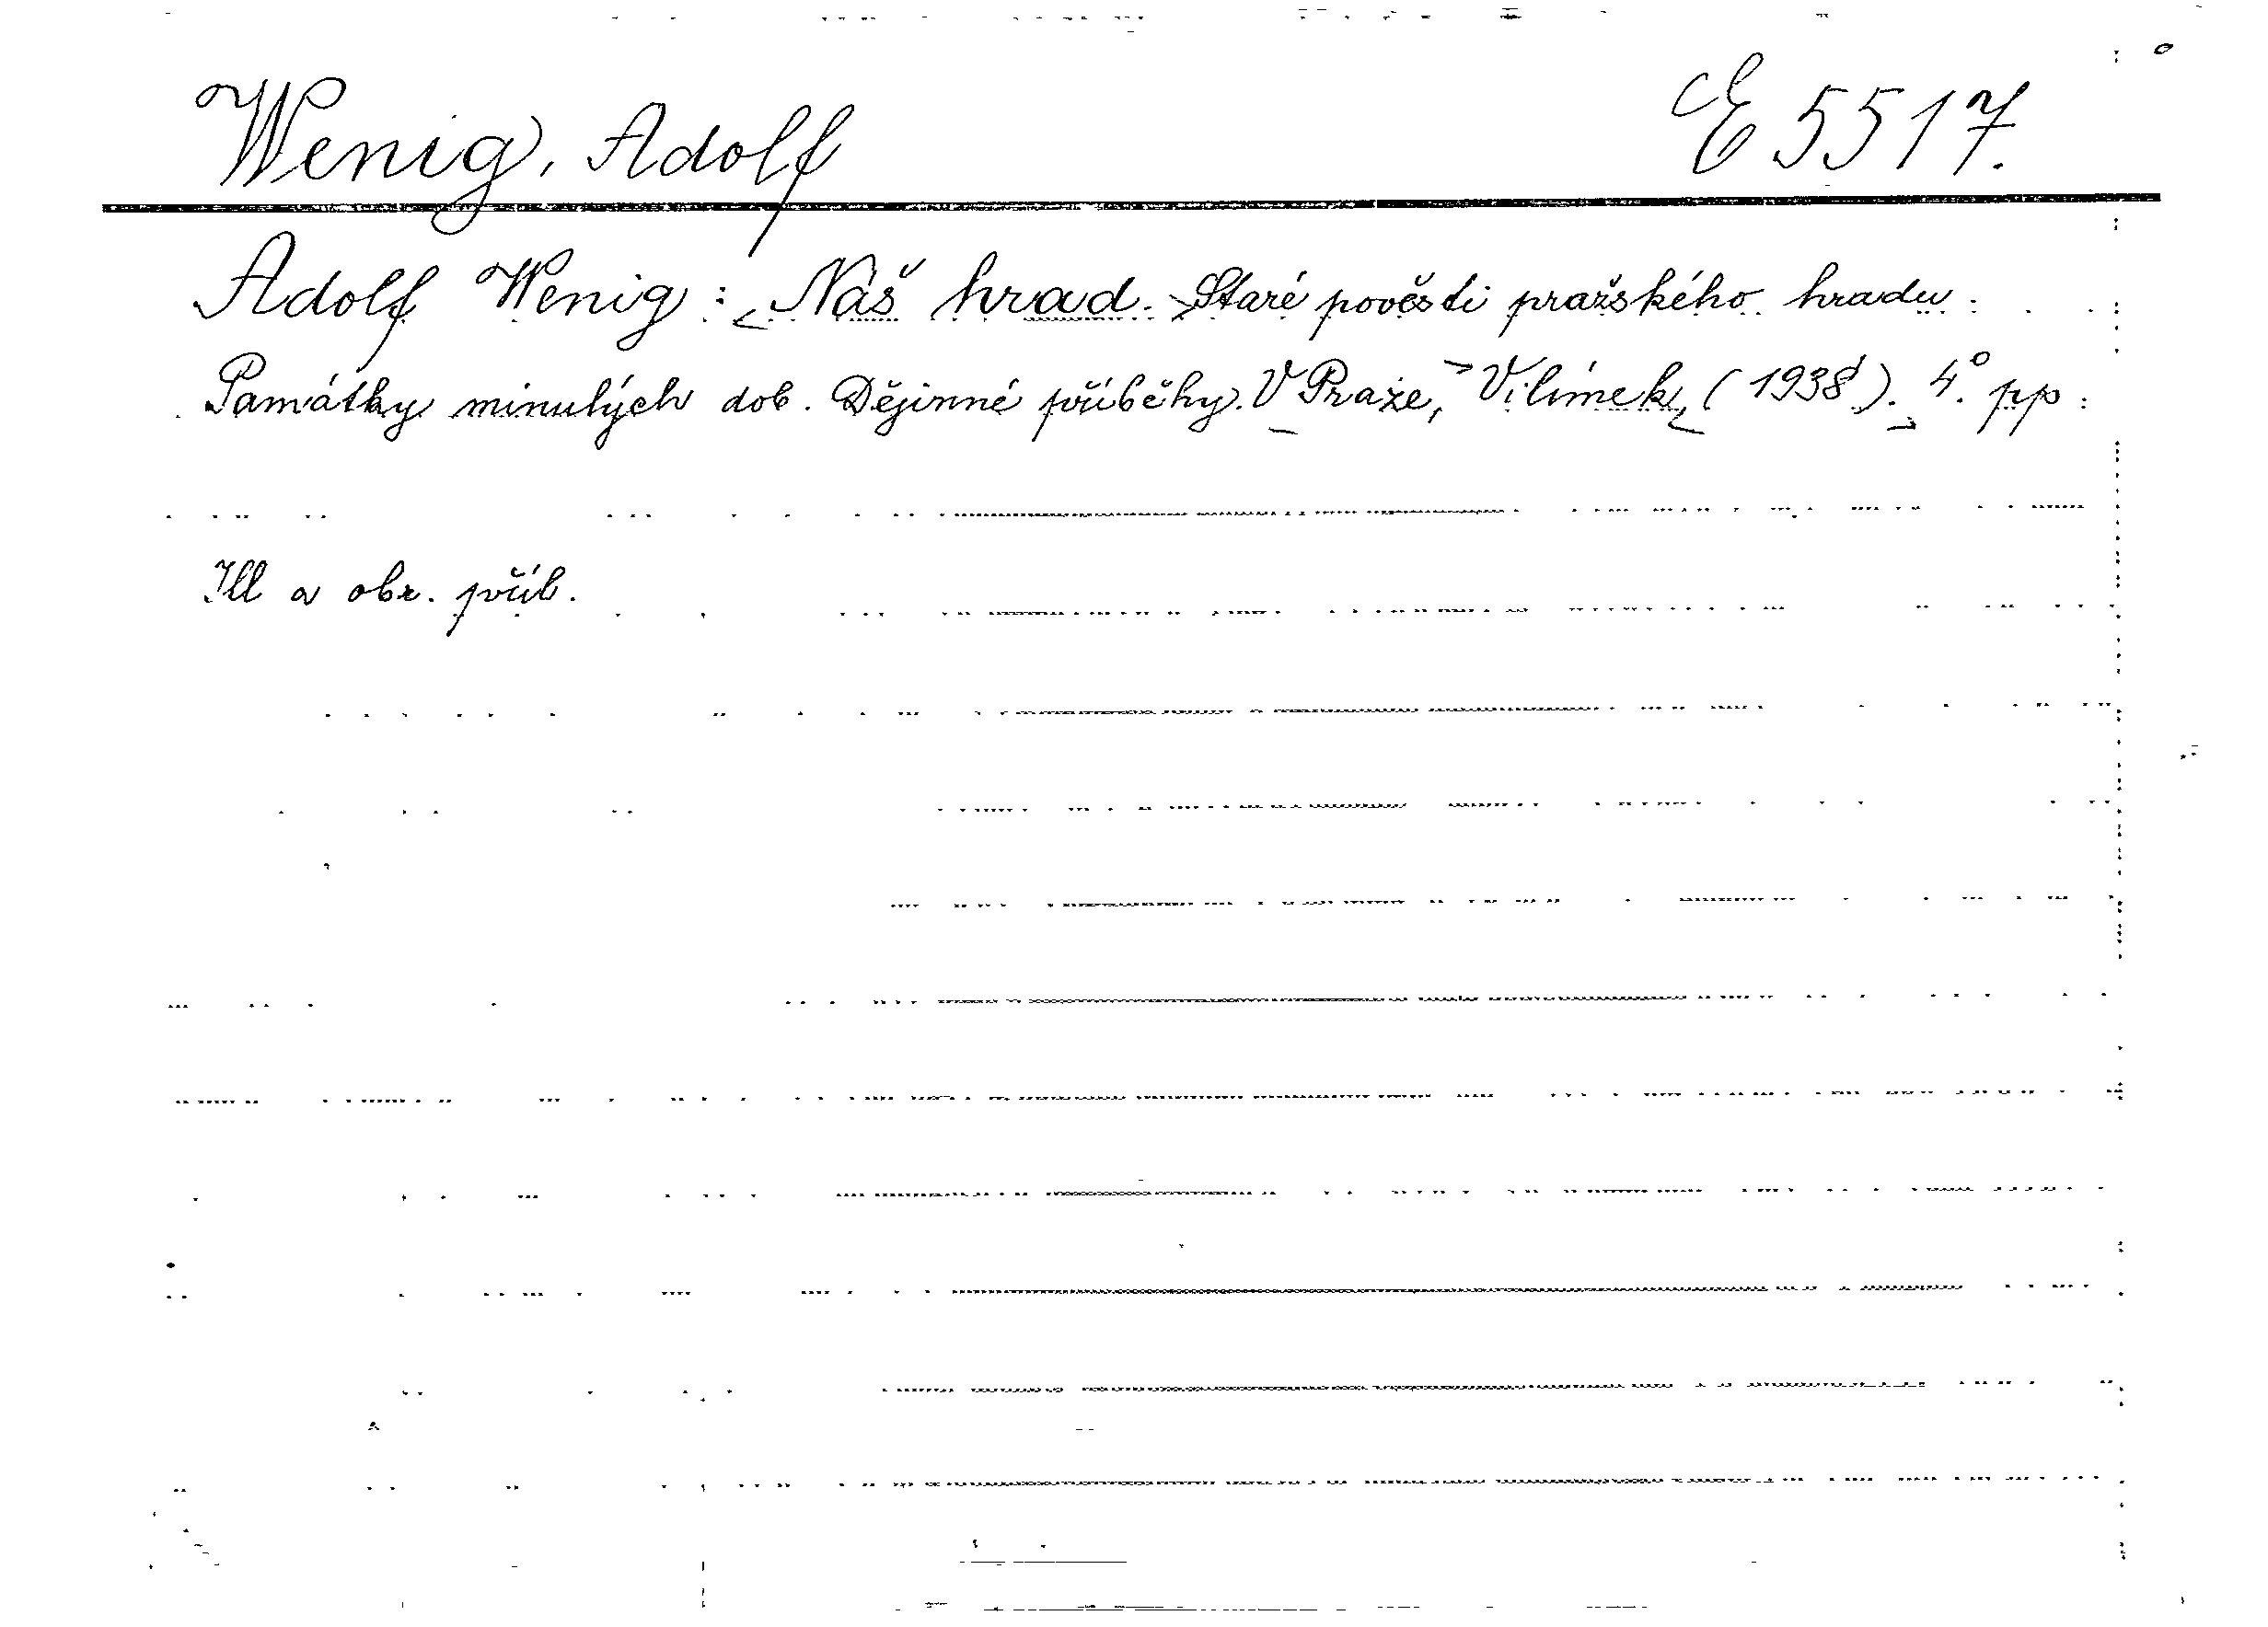 Wenig, Adolf E 5517.
Adolf Wenig: Náš hrad. Staré pověsti pražského hradu.
Památky minulých dob. Dějinné příběhy. V Praze, Vilímek, (1938). 4° pp.
Ill a obr. příl.